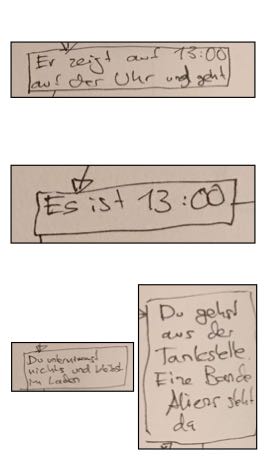 Er zeigt auf 13:00
auf der Uhr und geht
Es ist 13:00
Du unternimmst
nichts und bleibst
im Laden
Du gehst
aus der
Tankstelle.
Eine Bande
Aliens steht
da